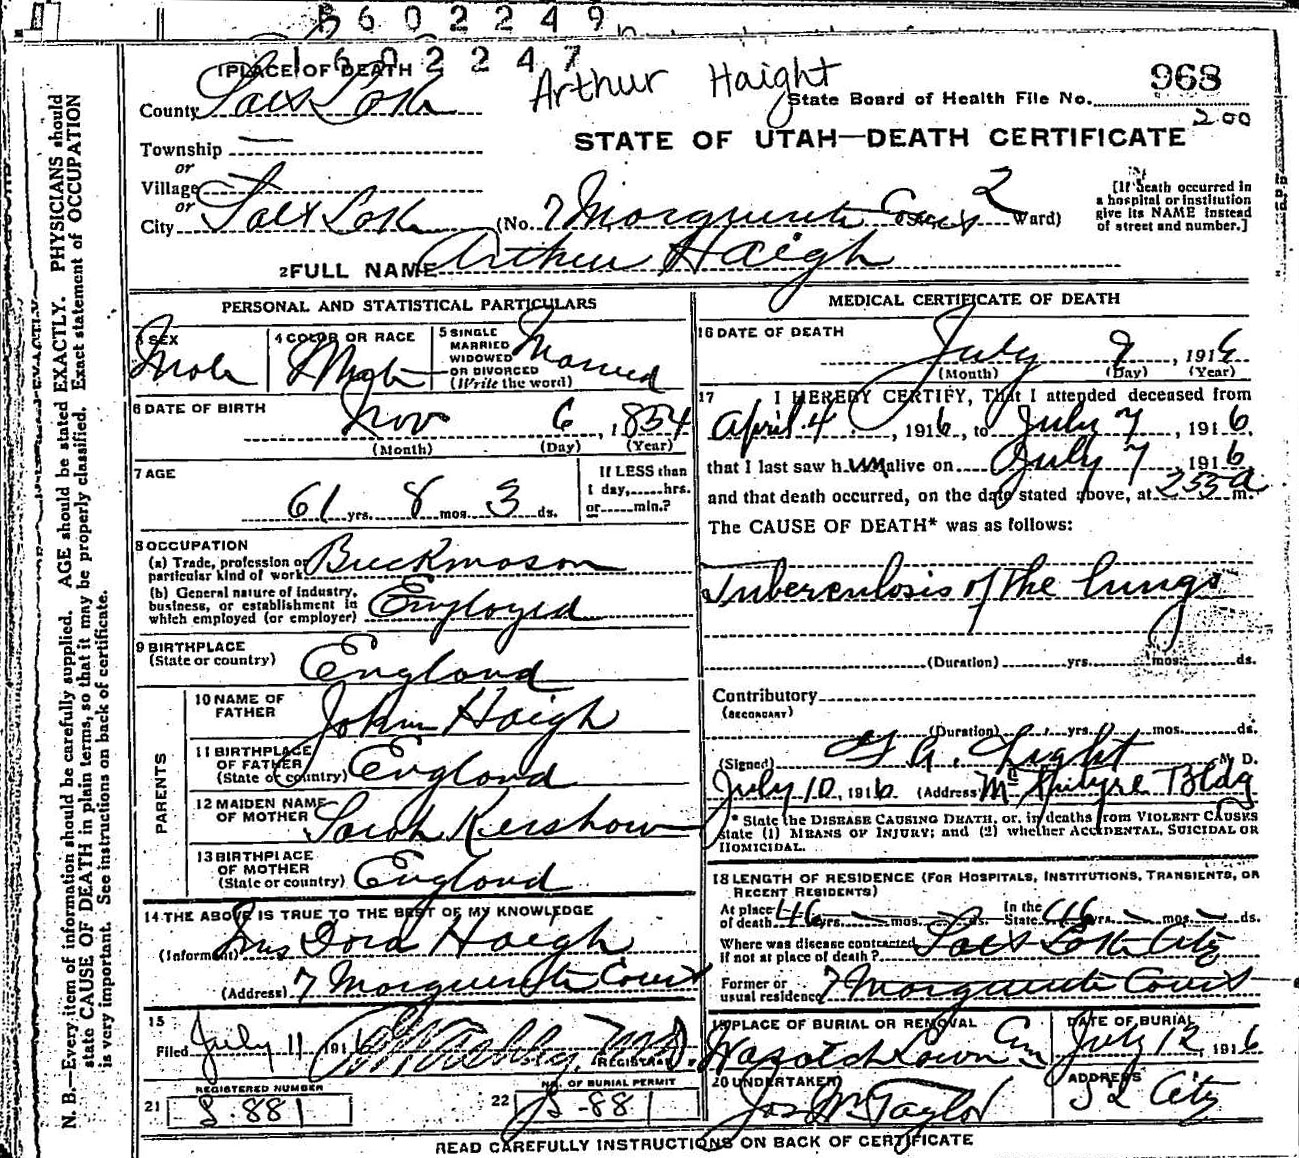 B602249
1602247
1 PLACE OF DEATH
Arthur Haight
968
County Salt Lake
State Board of Health File No.
200
STATE OF UTAH—DEATH CERTIFICATE
Township —
or
Village —
or
City Salt Lake (No. 7 Marguerite Court 2 Ward)
[If death occurred in a hospital or institution give its NAME instead of street and number.]
2 FULL NAME Arthur Haigh
PERSONAL AND STATISTICAL PARTICULARS
3 SEX Male
4 COLOR OR RACE White
5 SINGLE MARRIED WIDOWED OR DIVORCED (Write the word) Married
6 DATE OF BIRTH Nov 6, 1854
(Month) (Day) (Year)
7 AGE 61 yrs. 8 mos. 3 ds.
If LESS than 1 day, hrs. or min.?
8 OCCUPATION
(a) Trade, profession or particular kind of work Brickmason
(b) General nature of industry, business, or establishment in which employed (or employer) Employed
9 BIRTHPLACE (State or country) England
PARENTS
10 NAME OF FATHER John Haigh
11 BIRTHPLACE OF FATHER (State or country) England
12 MAIDEN NAME OF MOTHER Sarah Kershaw
13 BIRTHPLACE OF MOTHER (State or country) England
14 THE ABOVE IS TRUE TO THE BEST OF MY KNOWLEDGE
(Informant) Mrs Dora Haigh
(Address) 7 Marguerite Court
15
Filed July 11 1916 M.D. REGISTRAR
REGISTERED NUMBER
21 S-881
NO. OF BURIAL PERMIT
22 S-881
MEDICAL CERTIFICATE OF DEATH
16 DATE OF DEATH July 9, 1916
(Month) (Day) (Year)
17 I HEREBY CERTIFY, That I attended deceased from
April 4, 1916, to July 7, 1916,
that I last saw him alive on July 7 1916
and that death occurred, on the date stated above, at 255 a m.
The CAUSE OF DEATH* was as follows:
Tuberculosis of the lungs
(Duration) yrs. mos. ds.
Contributory
(SECONDARY)
(Duration) yrs. mos. ds.
(Signed) Light M. D.
July 10, 1916. (Address) McIntyre Bldg
* State the DISEASE CAUSING DEATH, or, in deaths from VIOLENT CAUSES
state (1) MEANS OF INJURY; and (2) whether ACCIDENTAL, SUICIDAL OR
HOMICIDAL.
18 LENGTH OF RESIDENCE (FOR HOSPITALS, INSTITUTIONS, TRANSIENTS, OR
RECENT RESIDENTS)
At place of death 46 yrs. — mos. — ds. In the State 46 yrs. — mos. — ds.
Where was disease contracted if not at place of death? Salt Lake City
Former or usual residence 7 Marguerite Court
19 PLACE OF BURIAL OR REMOVAL Wasatch Lawn Cem
DATE OF BURIAL July 12, 1916
20 UNDERTAKER Jos Wm Taylor
ADDRESS City
READ CAREFULLY INSTRUCTIONS ON BACK OF CERTIFICATE
N. B.—Every item of information should be carefully supplied. AGE should be stated EXACTLY. PHYSICIANS should
state CAUSE OF DEATH in plain terms, so that it may be properly classified. Exact statement of OCCUPATION
is very important. See instructions on back of certificate.